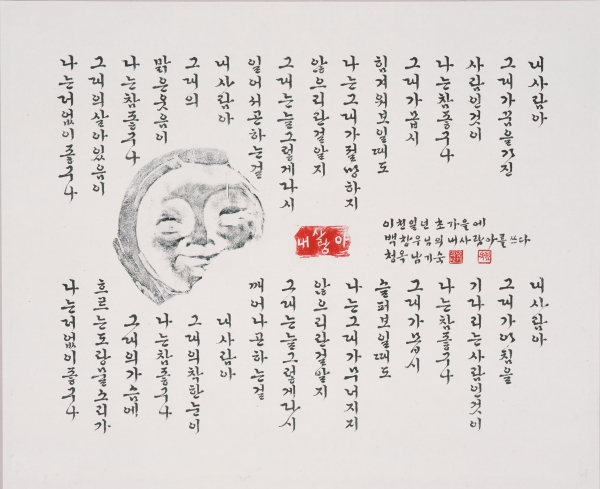 내 사람아
그대가 꿈을 가진
사람인 것이
나는 참 좋구나
그대가 몹시
힘겨워 보일 때도
나는 그대가 절망하지
않으리란 걸 알지
그대는 늘 그렇게 다시
일어서곤 하는 걸
내 사람아
그대의
맑은 웃음이
나는 참 좋구나
그대의 살아 있음이
나는 더없이 좋구나
내 사람아
그대가 아침을
기다리는 사람인 것이
나는 참 좋구나
그대가 몹시
슬퍼 보일 때도
나는 그대가 무너지지
않으리란 걸 알지
그대는 늘 그렇게 다시
깨어나곤 하는 걸
내 사람아
그대의 착한 눈이
나는 참 좋구나
그대의 가슴에
흐르는 도랑물 소리가
나는 더없이 좋구나
내 사람아
이천일년 초가을에
백창우님의 내 사람아를 쓰다
청옥 남기숙